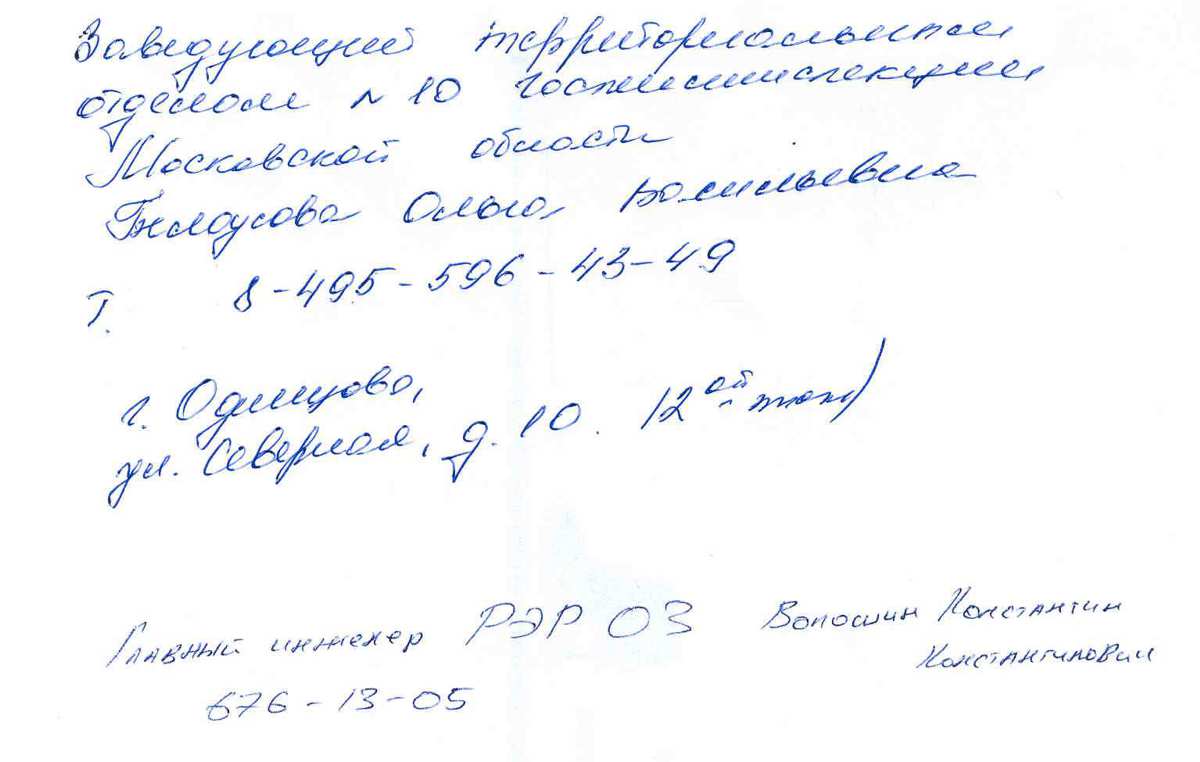 Заведующий территориальным
отделом N 10 Госжилинспекции
Московской области
Белоусова Ольга Васильевна
Т. 8-495-596-43-49
г. Одинцово,
ул. Северная, д. 10. 12ый этаж)
Главный инженер РЭР 03 Волошин Константин
Константинович
676-13-05